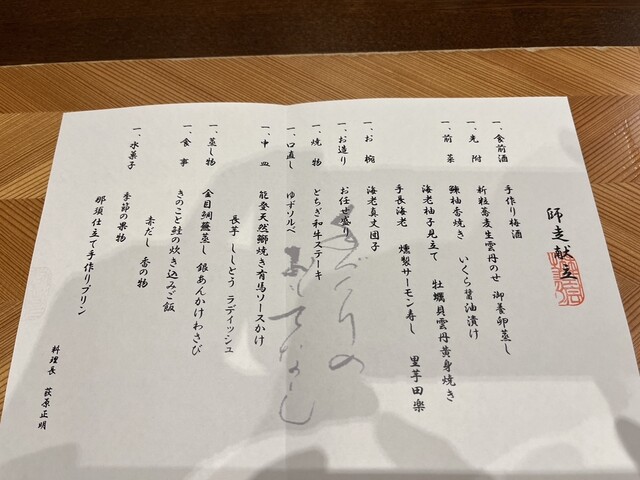 師走献立
一、食前酒　手作り梅酒
一、先　附　新粒蕎麦生雲丹のせ　御養卵蒸し
一、前　菜　鰊柚香焼き　いくら醤油漬け
海老柚子見立て　牡蠣貝雲丹黄身焼き
手長海老　燻製サーモン寿し　里芋田楽
一、お　椀　海老真丈団子
一、お造り　お任せ盛り
一、焼　物　とちぎ和牛ステーキ
一、口直し　ゆずソルベ
一、中　皿　能登天然鰤焼き有馬ソースかけ
長芋　ししとう　ラディッシュ
一、蒸し物　金目鯛蕪蒸し　銀あんかけわさび
一、食　事　きのこと鮭の炊き込みご飯
赤だし　香の物
一、水菓子　季節の果物
那須仕立て手作りプリン
料理長　荻原正明
おもてなし